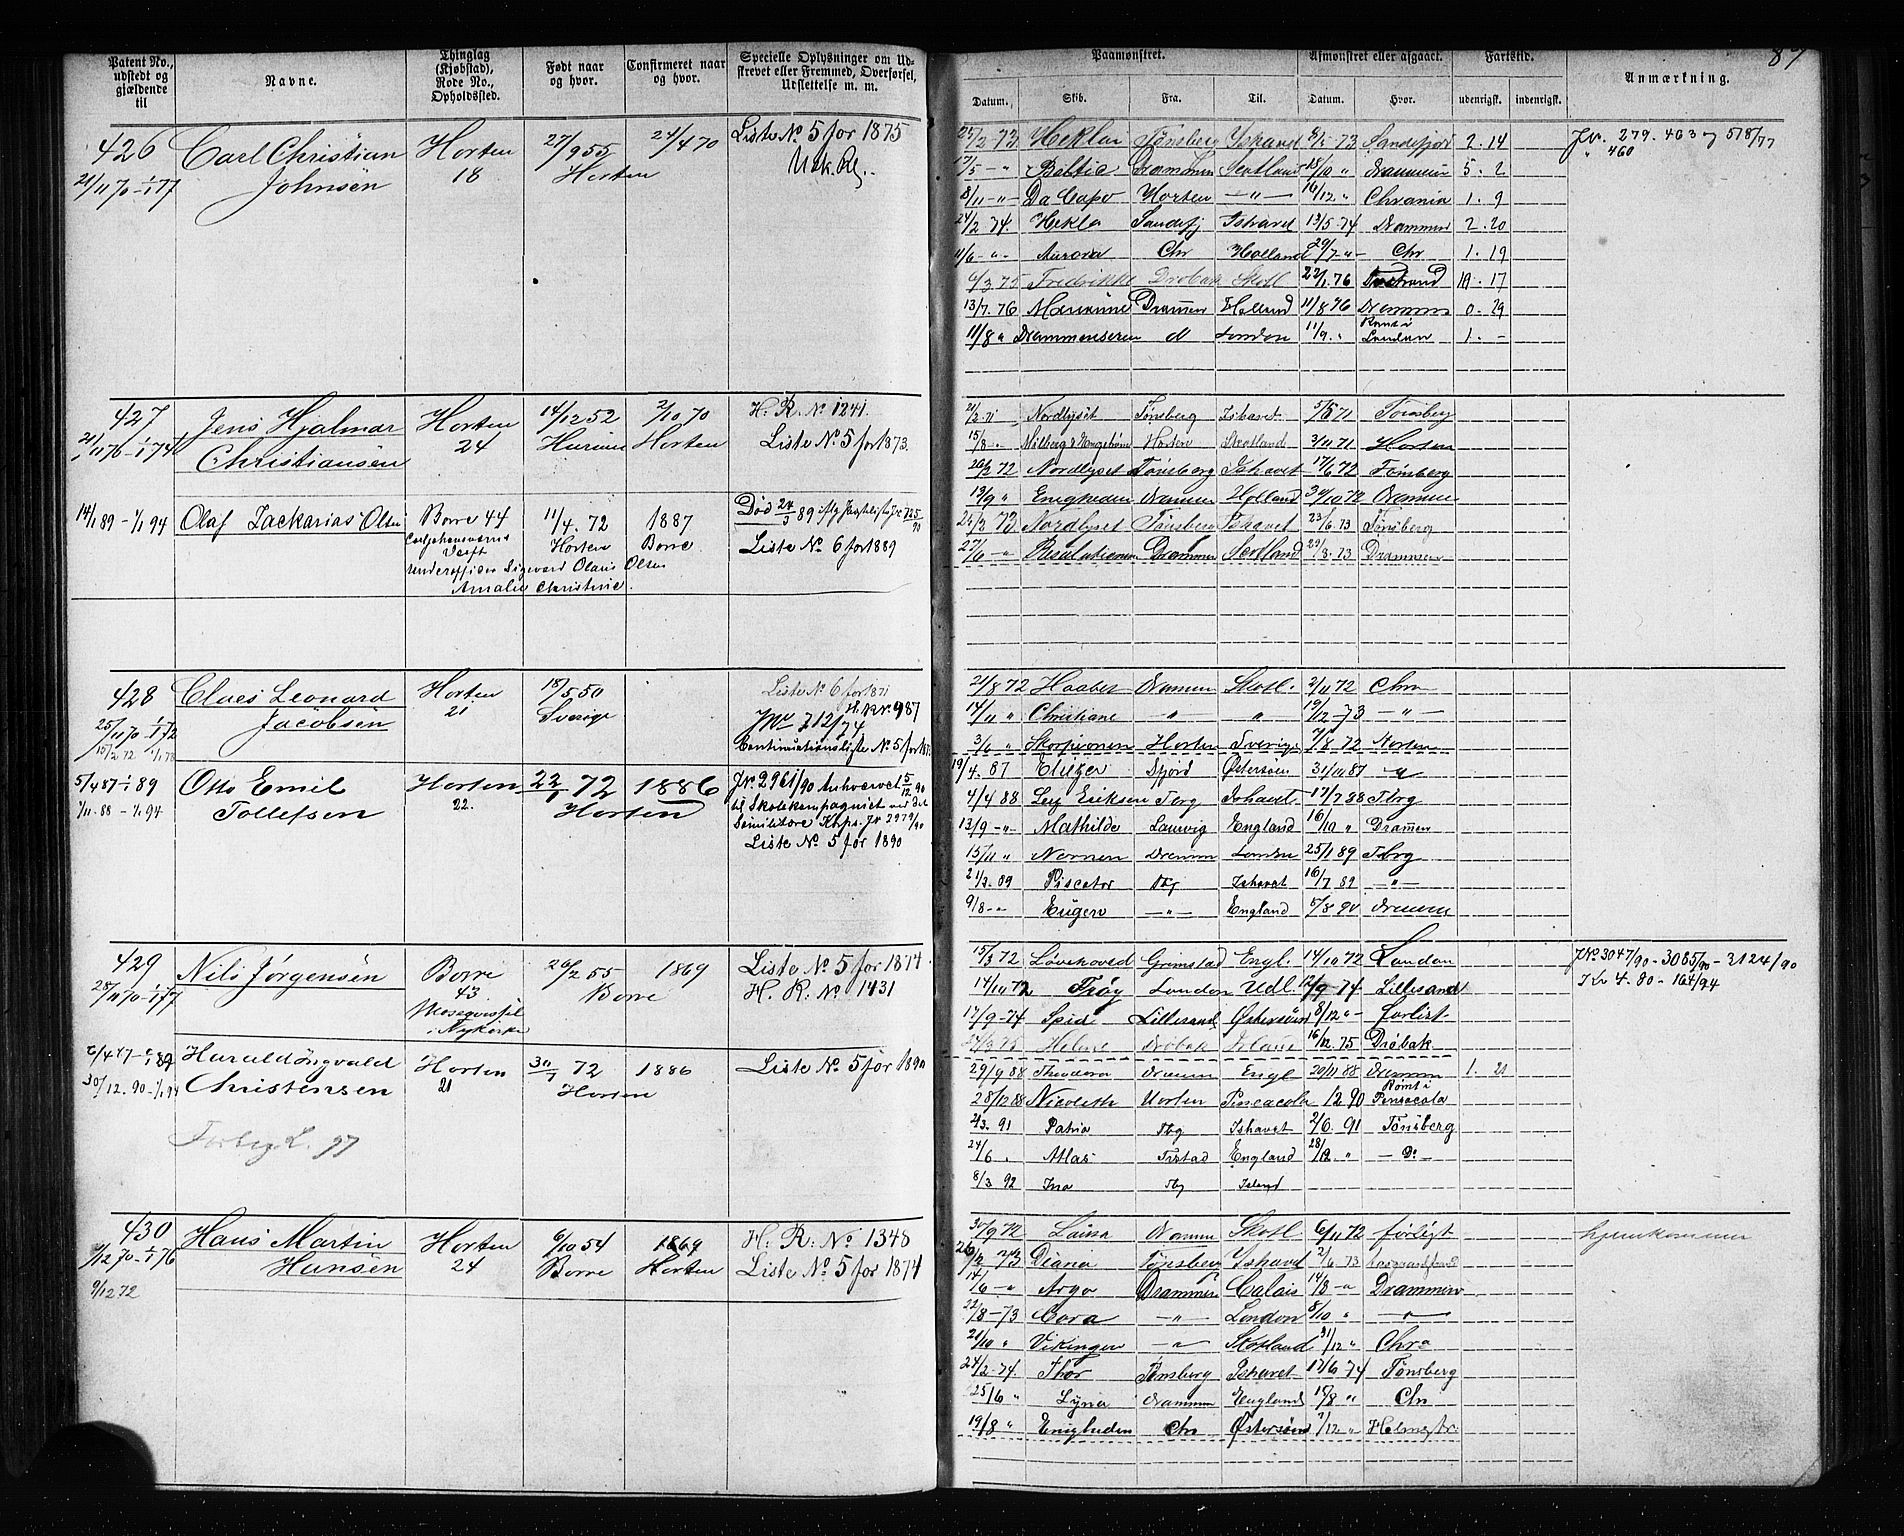 87
Patent No., udstedt og gjældende til
Navne.
Thinglag (Kjøbstad), Rode No., Opholdssted.
Født naar og hvor.
Confirmeret naar og hvor.
Specielle Oplysninger om Udskrevet eller Fremmed, Overførsel, Udslettelse m. m.
Paamønstret.
Afmønstret eller afgaaet.
Fartstid.
Anmærkning.
Datum. Skib. Fra. Til. Datum. Hvor. udenrigsk. indenrigsk.
426 Carl Christian Horten 27/9 55 24/4 70 Liste No 5 for 1875
21/11 70 - 1/1 77 Johnsen 18 Horten
Hekla Tønsberg Ishavet 73 Sandefjord 2. 14 279. 463 518/77
17/5 -"- Baltic Drammen Scotland 18/10 " Drammen 5. 2 " 460
8/11 -"- Da Capo Horten -"- 16/12 " Chrania 1. 9
24/2 74. Hekla Sandefj Ishavet 13/5 74 Drammen 2. 20
Aurora Chr Holland 29/7 -"- Chr 1. 19
75 Fredrikke Drøbak Skotl 22/1 76 17
13/7. 76 Marianne Drammen Holland 11/8 76 Drammen 0. 29
11/8 " Drammenseren d London 11/9 " Rømt i London 1. -
427 Jens Hjalmar Horten 14/12 52 2/10 70 H. R. No 1241.
21/11 70 - 1/1 74 Christiansen 24 Hurum Horten Liste No 5 for 1873.
Nordlyset Tønsberg Ishavet 71 Tønsberg
15/8 " Horten Skotland 3/11 71 Horten
26/2 72 Nordlyset Tønsberg Ishavet 17/6 72 Tønsberg
13/9 " Enigheden Drammen Holland 10 72 Drammen
26/2 73 Nordlyset Tønsberg Ishavet 23/6 73 Tønsberg
27/6 -"- Resolutionen Drammen Skotland 29/8. 73 Drammen
14/1 89 - 1/1 94 Olaf Zackarias Olsen Borre 44 11/4. 72 1887 Død 24/3 89
Carljohansværns Værft Horten Borre Liste No 6 for 1889
Underofficer Sigvard Olaus Olsen
Amalie Christine.
428 Claes Leonard Horten 18/5 50 Liste No 6 for 1871
25/11 70 - 1/1 72 Jacobsen 21 Sverige H. R. No 987
Continuationsliste No 5 for
21/8 72 Haabet Drammen Skotl. 2/11 72 Chra
14/11 " Christiane " " 19/12 73 -"-
3/6 " Skorpionen Horten Sverige 7/8 72 Horten
5/4 87 - 1/1 89 Otto Emil Horten 22/1 72 1886 JNo 2961/90 Anhvervet 15/12 90
7/11 88 - 1/1 94 Tollefsen 22. Horten til Skolekompagniet ved det
Søimilitære Khps. Jr 2979/90
Liste No 5 for 1890
19/4. 87 Eliezer Sfjord Østersøen 31/10 87 -"-
4/4 88 Leif Eriksen Tbrg Ishavet. 17/7 88 Tbrg
13/9 -"- Mathilde Laurvig England 16/10 " Drammen
15/11 " Nornen Drammen London 25/1 89 Tbrg
89 Piscator Tbg Ishavet 16/7 89 -"-
9/8 -"- Eugen -"- England 5/8 90 Drammen
429 Nils Jørgensen Borre 26/2 55 1869 Liste No 5 for 1874
28/11 70 - 1/1 77 43 Borre H. R. No 1431
i Nykirke
15/3 72 Løvehoved Grimstad Engl. 14/10 72 London JNo 3047/90 - 3085/90 - 3124/90
14/10 72 Frøy London Udl. 74 Lillesand 4. 80 - 164/94
17/9 - 74 Spidi Lillesand Østersøen 8/12 " forlist
75 Helene Drøbak 16/12. 75 Drøbak
Harald Ongvald Horten 30/1 72 1886 Liste No 5 for 1890
30/12. 90 - 1/1 94 Christensen 21 Horten
97
29/9 88 Theodora Drammen Engl 20/11 88 Drammen 1. 21
28/12 88 Nicoleth Horten Pensacola 12 90 Rømt i Pensacola
91 Patria Tbg Ishavet 2/6. 91 Tønsberg
24/6 " Atlas England 28/12 " - Do -
8/3 92 Ino Tbg Island
430 Hans Martin Horten 6/10 54 1869 H. R. No 1348
1/12 70 - 1/1 76 Hansen 24 Borre Horten Liste No 5 for 1874
9/12 72
30/9 72 Laura Drammen Skotl. 6/11 72 forligt hjemkommen
73 Diana Tønsberg Ishavet 2/6 73
14/6 -"- Argo Drammen Calais 14/8 -" Drammen
22/8 - 73 Cora -"- London 8/10 " -"-
21/10 " Vikingen -"- Skotland 31/12 " Chra
24/2 - 74. Thor Tønsberg Ishavet 12/6 74 Tønsberg
25/6 " Lyna Drammen England 15/8 " Chr
19/8 " Enigheden Chr Østersøen Holmestr.